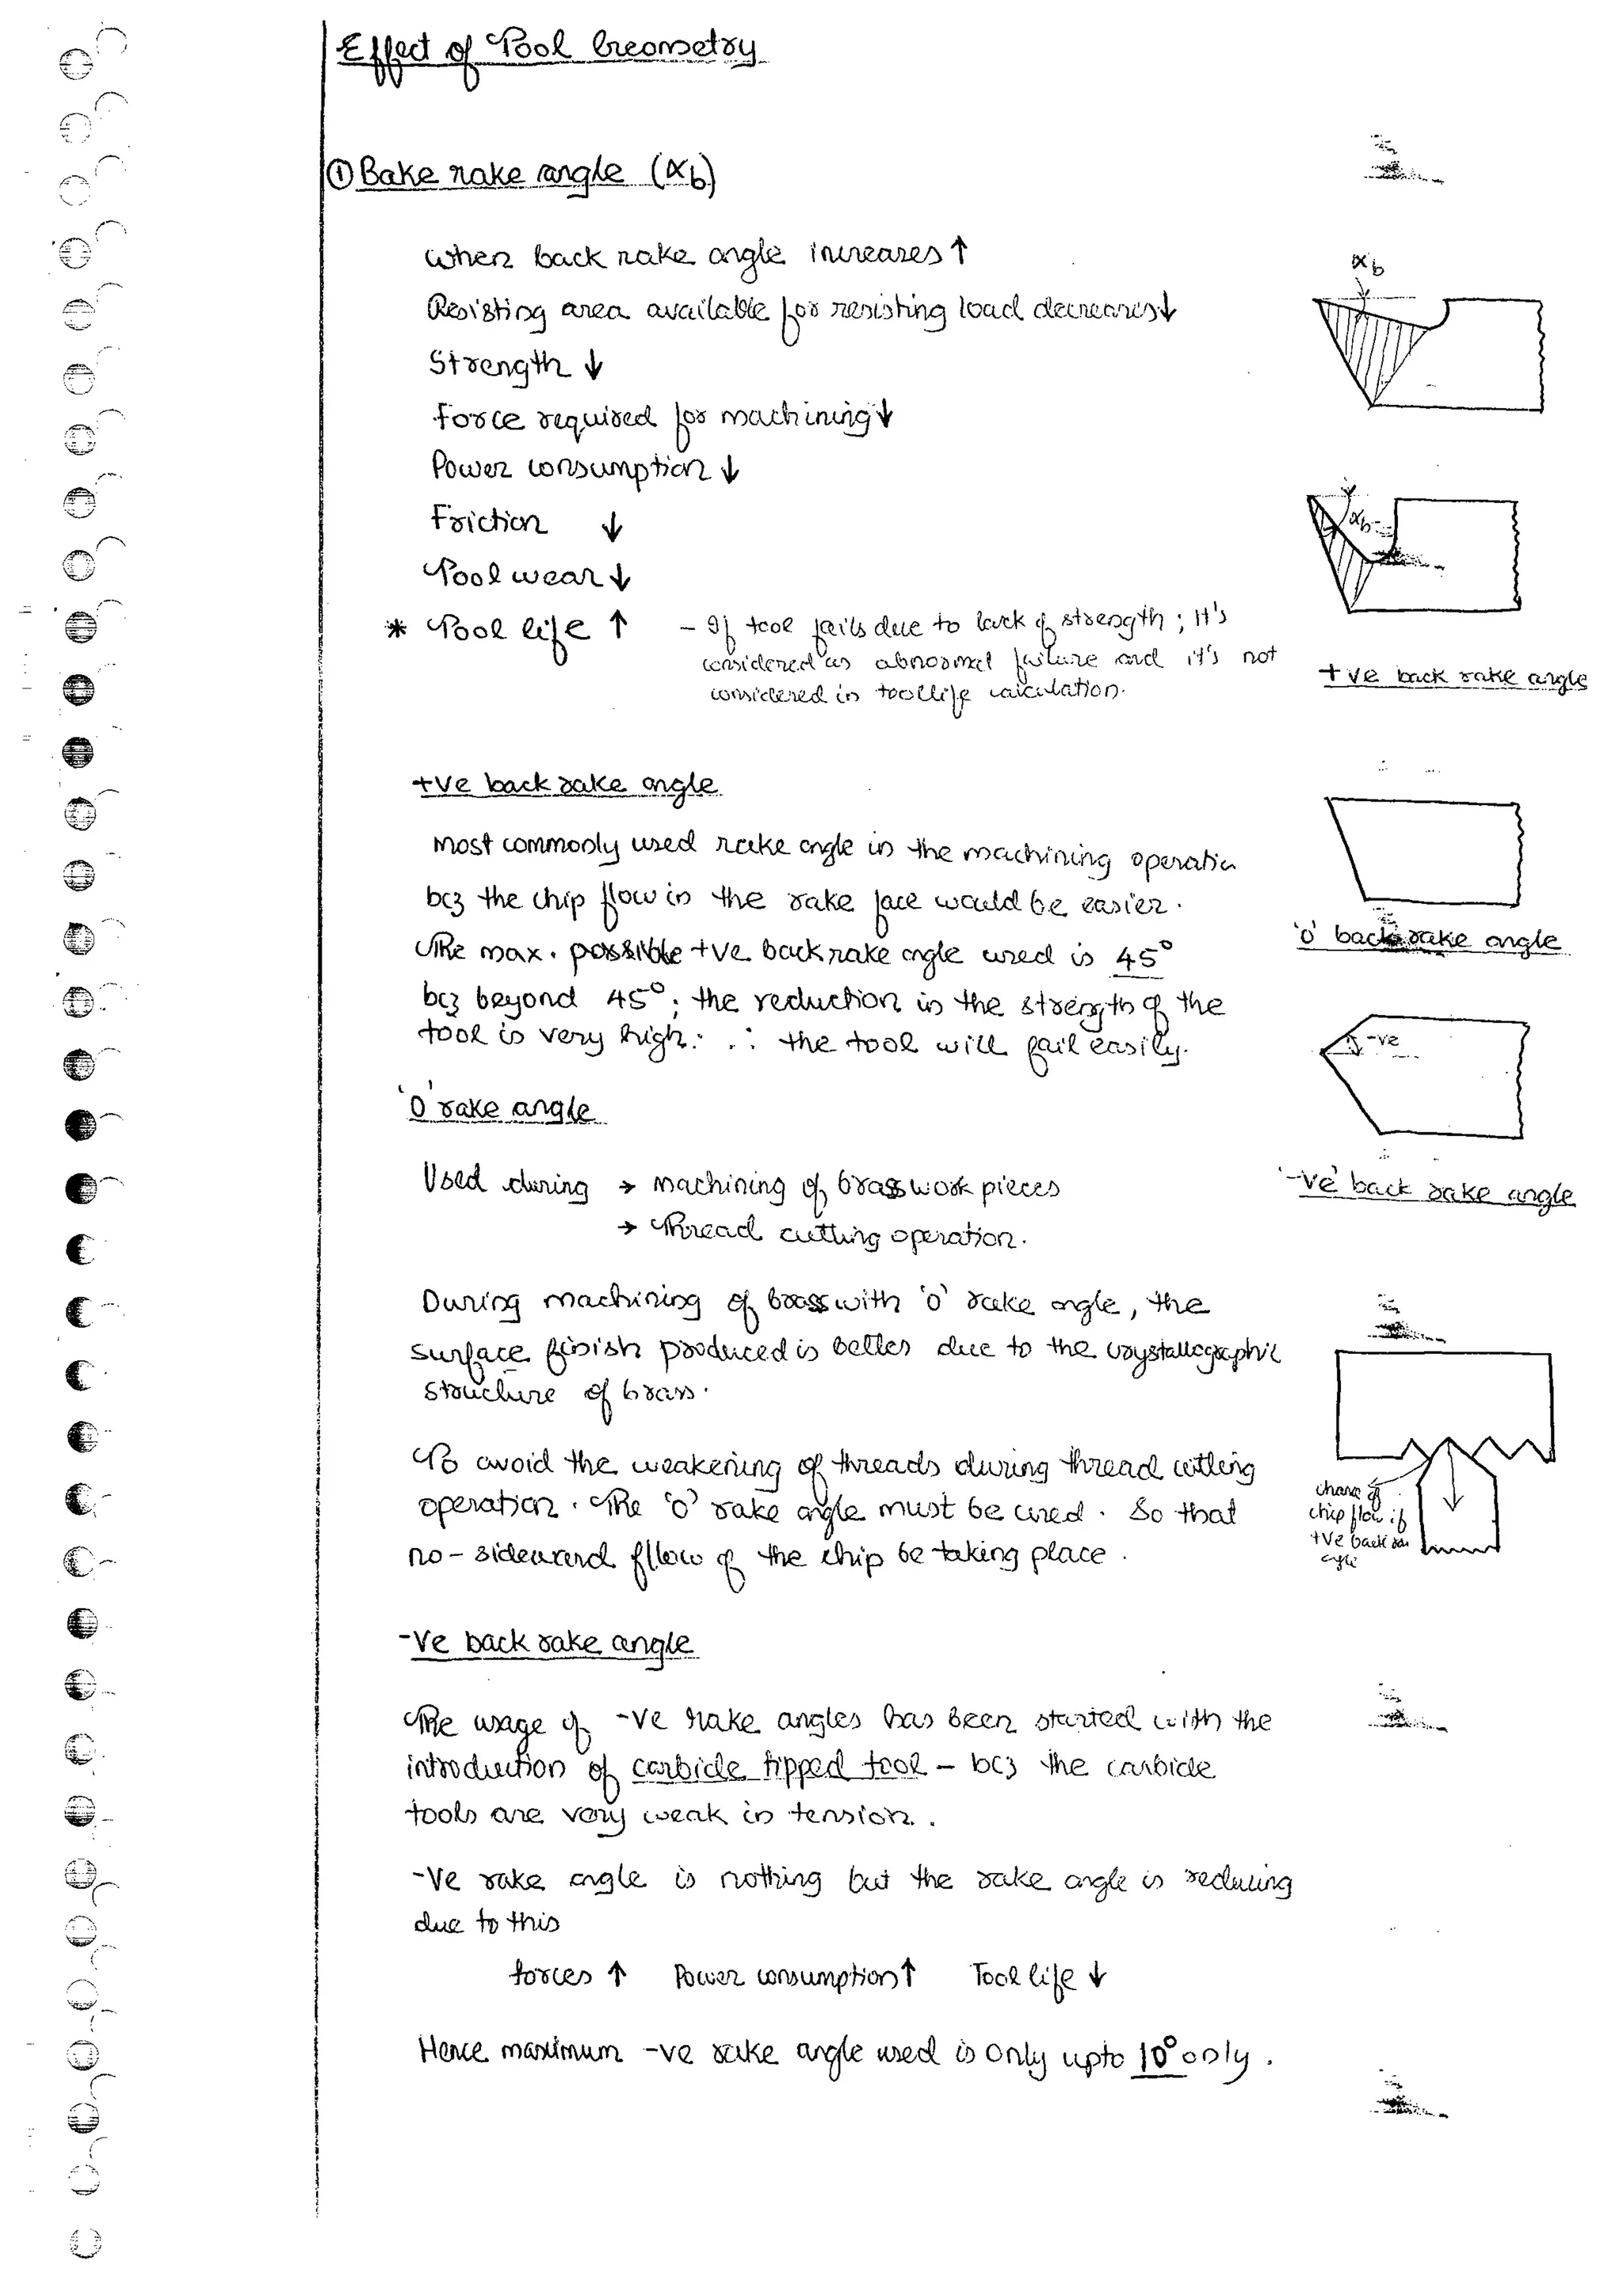 Effect of Tool Geometry
① Bake rake angle (αb)
when back rake angle increases ↑
Resisting area available for resisting load decreases↓
Strength ↓
force required for machining↓
Power consumption ↓
Friction ↓
Tool wear ↓
* Tool life ↑ - If tool fails due to lack of strength ; it's
considered as abnormal failure and it's not
considered in toollife calculation.
αb
αb
+ve back rake angle
+ve back rake angle
most commonly used rake angle in the machining operation
bcz the chip flow in the rake face would be easier.
The max. possible +ve back rake angle used is 45°
bcz beyond 45°; the reduction in the strength of the
tool is very high. ∴ the tool will fail easily.
'0' back rake angle
-ve
'-ve' back rake angle
'0' rake angle
Used during → machining of brass work pieces
→ Thread cutting operation.
During machining of brass with '0' rake angle, the
surface finish produced is better due to the crystallographic
structure of brass.
To avoid the weakening of threads during thread cutting
operation. The '0' rake angle must be used. So that
no-sideward fllow of the chip be taking place.
chance of
chip flow if
+ve back
angle
-ve back rake angle
The usage of -ve rake angles has been started with the
introduction of carbide tipped tool - bcz the carbide
tools are very weak in tension.
-ve rake angle is nothing but the rake angle is reducing
due to this
forces ↑ Power consumption↑ Tool life ↓
Hence maximum -ve rake angle used is only upto 10° only.